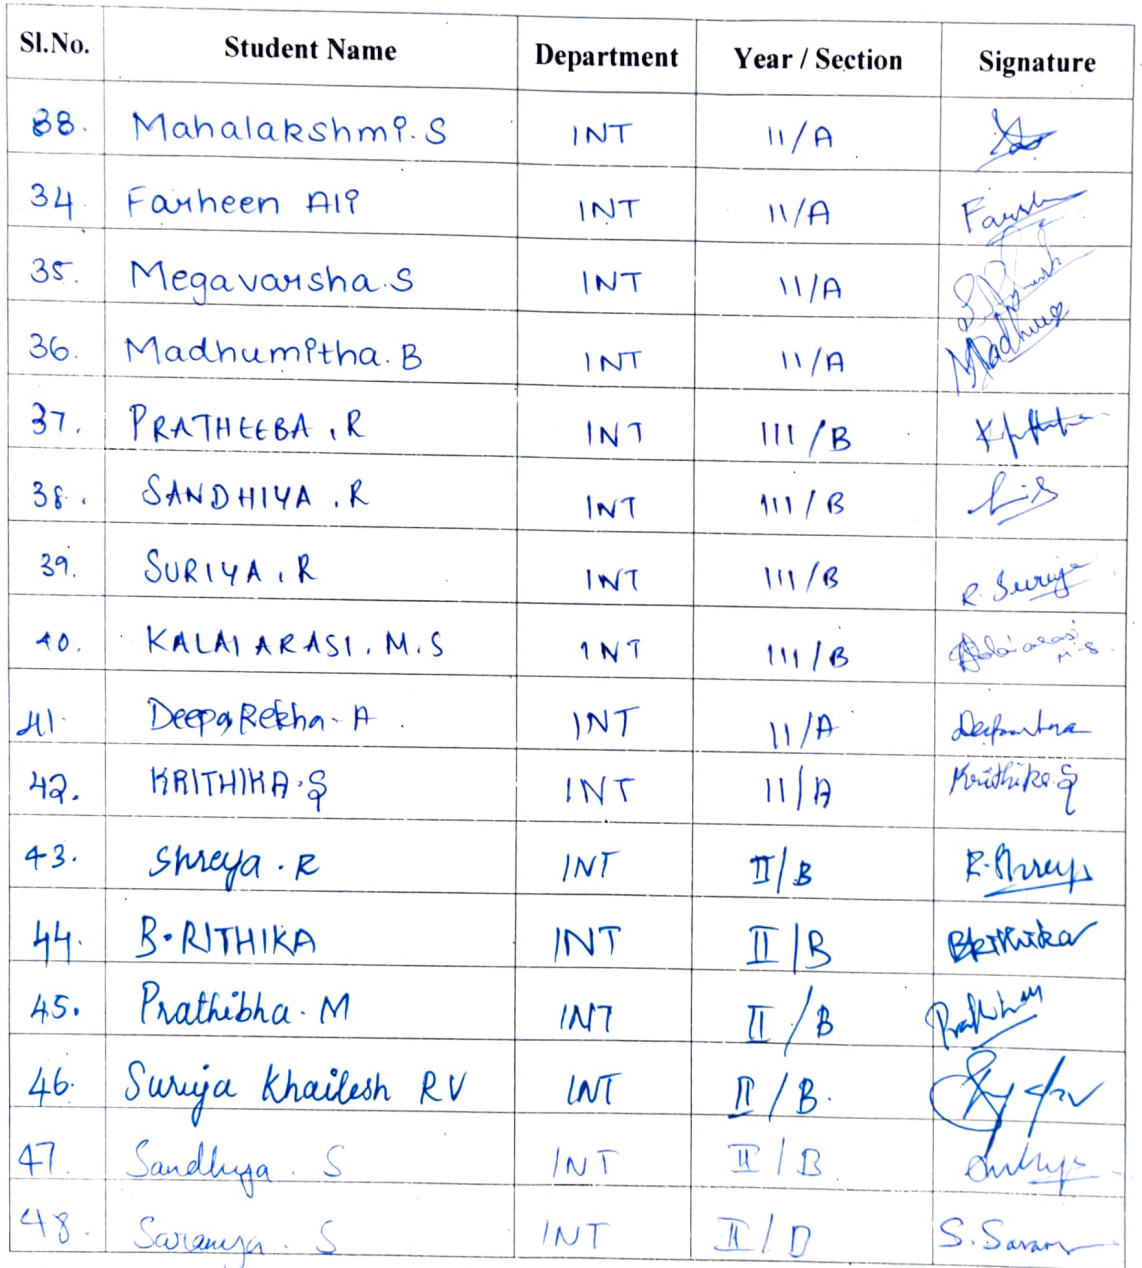 Sl.No. Student Name Department Year / Section Signature
33. Mahalakshmi.S INT II/A
34. Farheen Ali INT II/A
35. Megavarsha.S INT II/A
36. Madhumitha.B INT II/A
37. PRATHEEBA.R INT III/B
38. SANDHIYA.R INT III/B
39. SURIYA.R INT III/B R. Suriya
40. KALAIARASI.M.S INT III/B Kalaiarasi M.S.
41. Deepa Rekha-A INT II/A
42. KRITHIKA.S INT II/A Krithika.S
43. Shreya.R INT II/B R.Shreya
44. B.RITHIKA INT II/B BRithika
45. Prathibha.M INT II/B
46. Suriya Khailesh RV INT II/B.
47. Sandhya.S INT II/B
48. Saranya.S INT II/D S.Saran